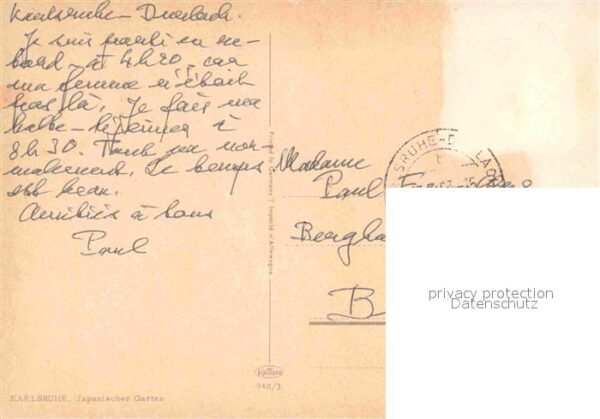 Karlsruhe-Durlach.
Je suis parti en
à 4h20, car
ma femme n'était
pas là. Je fais ma
halte-déjeuner à
8h30. Tout va nor-
malement. Le temps
est beau.
Amitiés à tous
Paul
Printed in Germany / Imprimé d'Allemagne
KARLSRUHE-D
Madame
Paul
Bergha
B
privacy protection
Datenschutz
Krüger
940/3
KARLSRUHE, Japanischer Garten